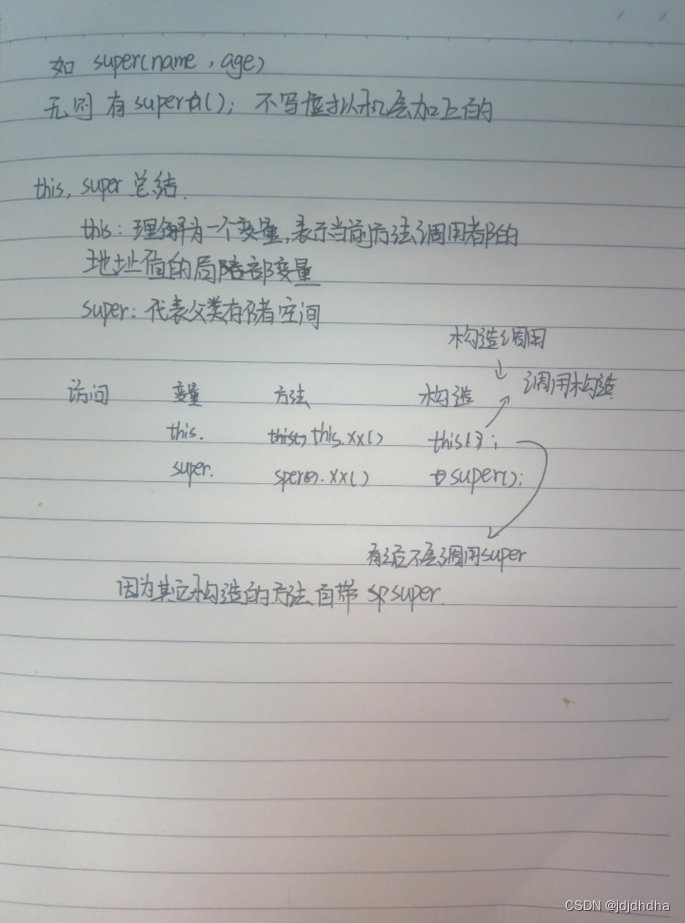 如 super(name, age)
无则有super(); 不写虚拟机会加上的
this, super 总结.
this: 理解为一个变量,表示当前方法调用者的
地址值的局部变量
super: 代表父类存储空间
构造调用
访问 变量 方法 构造 调用构造
this. this.xx() this();
super. super.xx() super();
有后不会调用super
因为其它构造的方法自带 super.
CSDN @jdjdhdha